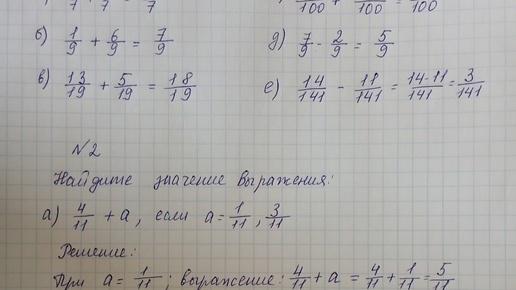 б) 1/9 + 6/9 = 7/9
д) 7/9 - 2/9 = 5/9
в) 13/19 + 5/19 = 18/19
е) 14/141 - 11/141 = 14-11/141 = 3/141
№2
Найдите значение выражения:
а) 4/11 + а, если а = 1/11, 3/11
Решение:
При а = 1/11; выражение: 4/11 + а = 4/11 + 1/11 = 5/11